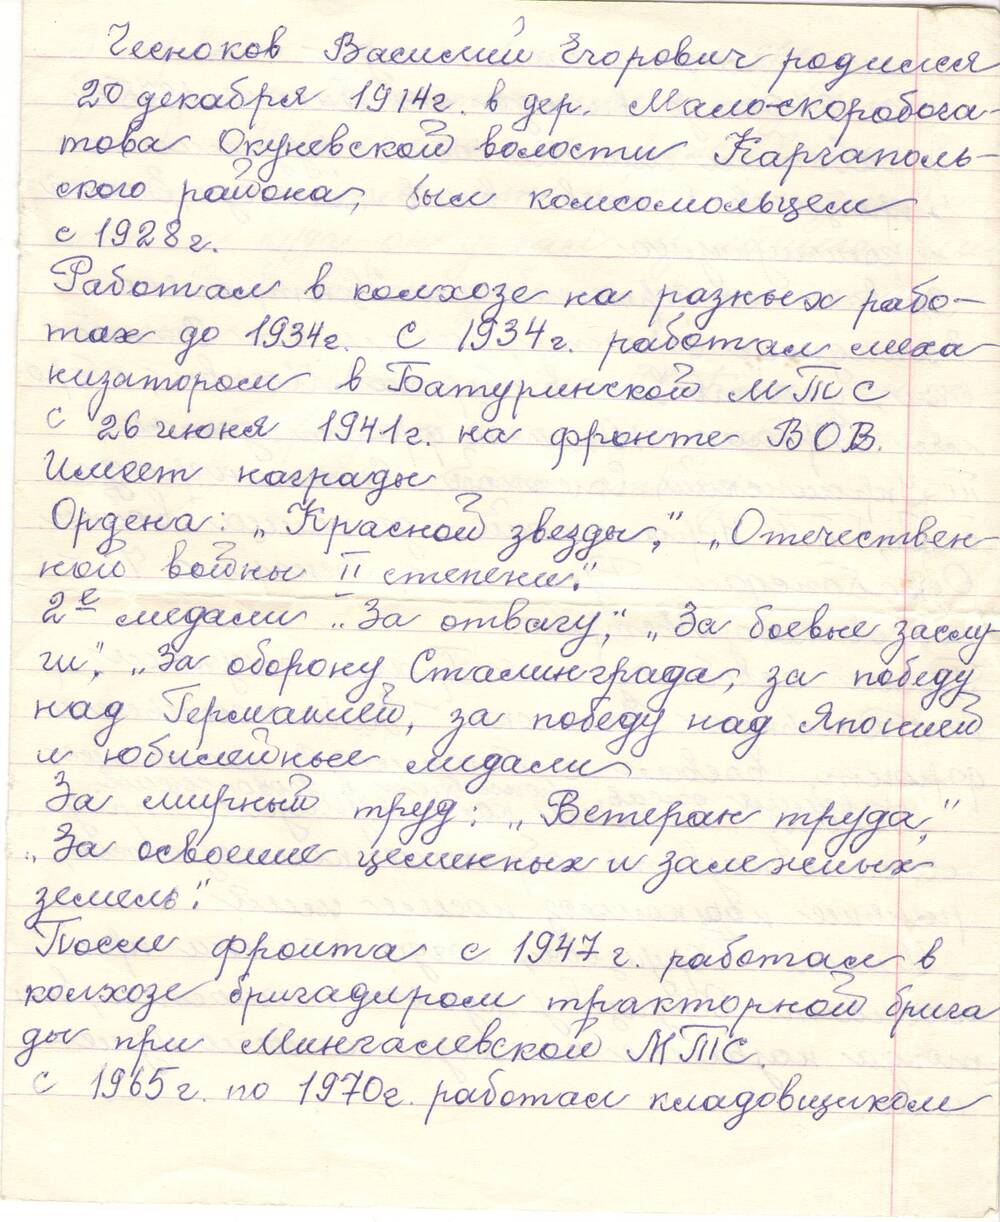 Чесноков Василий Егорович родился
20 декабря 1914г. в дер. Мало-скоробога-
това Окуневской волости Каргаполь-
ского района, был комсомольцем
с 1928г.
Работал в колхозе на разных рабо-
тах до 1934г. С 1934г. работал меха
низатором в Батуринской МТС
с 26 июня 1941г. на фронте ВОВ.
Имеет награды
Ордена: „Красной звезды", „Отечествен-
ной войны II степени".
2е медали „За отвагу", „За боевые заслу
ги", „За оборону Сталинграда, за победу
над Германией, за победу над Японией
и юбилейные медали
За мирный труд: „Ветеран труда",
„За освоение целинных и залежных
земель".
После фронта с 1947г. работал в
колхозе бригадиром тракторной брига
ды при Мингалевской МТС.
с 1965г. по 1970г. работал кладовщиком